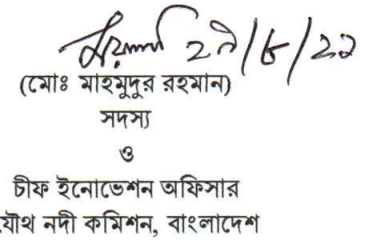 ২৭/৮/২২
(মোঃ মাহমুদুর রহমান)
সদস্য
ও
চীফ ইনোভেশন অফিসার
যৌথ নদী কমিশন, বাংলাদেশ